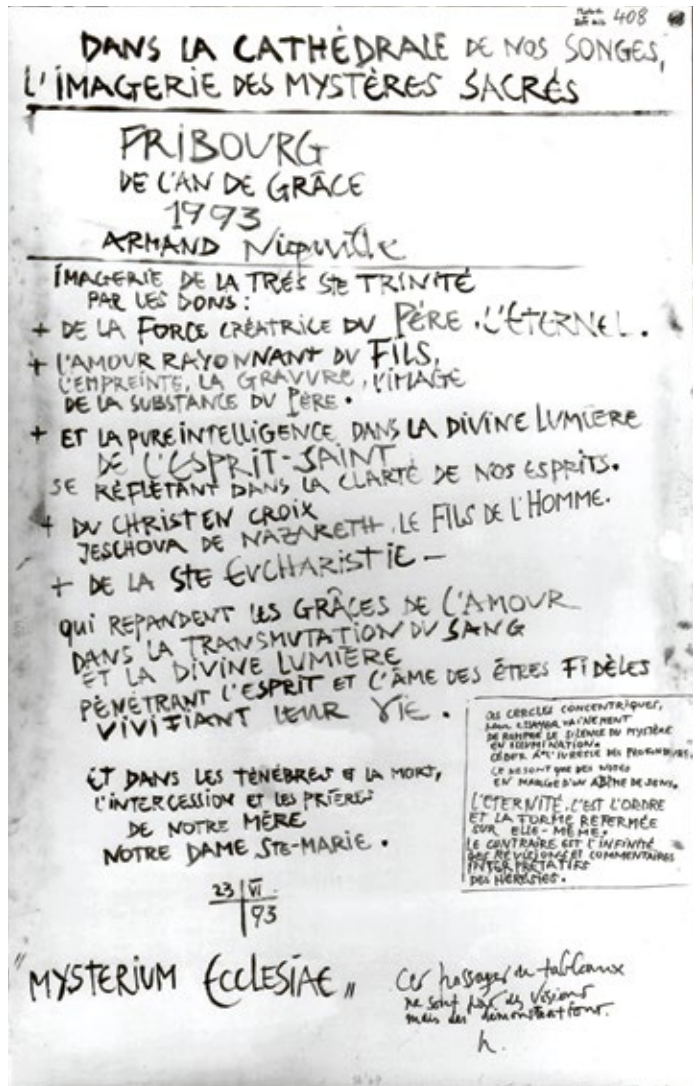 408
DANS LA CATHÉDRALE DE NOS SONGES,
L'IMAGERIE DES MYSTÈRES SACRÉS
FRIBOURG
DE L'AN DE GRÂCE
1993
ARMAND Niquille
IMAGERIE DE LA TRÉS STE TRINITÉ
PAR LES DONS :
+ DE LA FORCE CRÉATRICE DU PÈRE . L'ÉTERNEL .
+ L'AMOUR RAYONNANT DU FILS,
L'EMPREINTE, LA GRAVURE, L'IMAGE
DE LA SUBSTANCE DU PÈRE .
+ ET LA PURE INTELLIGENCE DANS LA DIVINE LUMIÈRE
DE L'ESPRIT-SAINT
SE RÉFLÉTANT DANS LA CLARTÉ DE NOS ESPRITS.
+ DU CHRIST EN CROIX
JESCHOVA DE NAZARETH, LE FILS DE L'HOMME.
+ DE LA STE EUCHARISTIE —
qui REPANDENT LES GRÂCES DE L'AMOUR
DANS LA TRANSMUTATION DU SANG
ET LA DIVINE LUMIÈRE
PÉNÉTRANT L'ESPRIT ET L'ÂME DES ÊTRES FIDÈLES
VIVIFIANT LEUR VIE .
ET DANS LES TÉNÉBRES ET LA MORT,
L'INTERCESSION ET LES PRIÈRES
DE NOTRE MÈRE
NOTRE DAME STE-MARIE .
23 VI
93
CES CERCLES CONCENTRIQUES,
VAINEMENT
DE ROMPRE LE SILENCE DU MYSTÈRE
EN ILLUMINATION.
CÉDER À L'IVRESSE DES PROFONDEURS,
CE NE SONT QUE DES NOTES
EN MARGE D'UN ABÎME DE SENS.
L'ETERNITÉ, C'EST L'ORDRE
ET LA FORME REFERMÉE
SUR ELLE-MÊME.
LE CONTRAIRE EST L'INFINITÉ
DES RÉVISIONS ET COMMENTAIRES
INTERPRÉTATIFS
DES HÉRÉSIES .
"MYSTERIUM ECCLESIAE"
Ces passages de tableaux
ne sont pas des visions
mais des démonstrations.